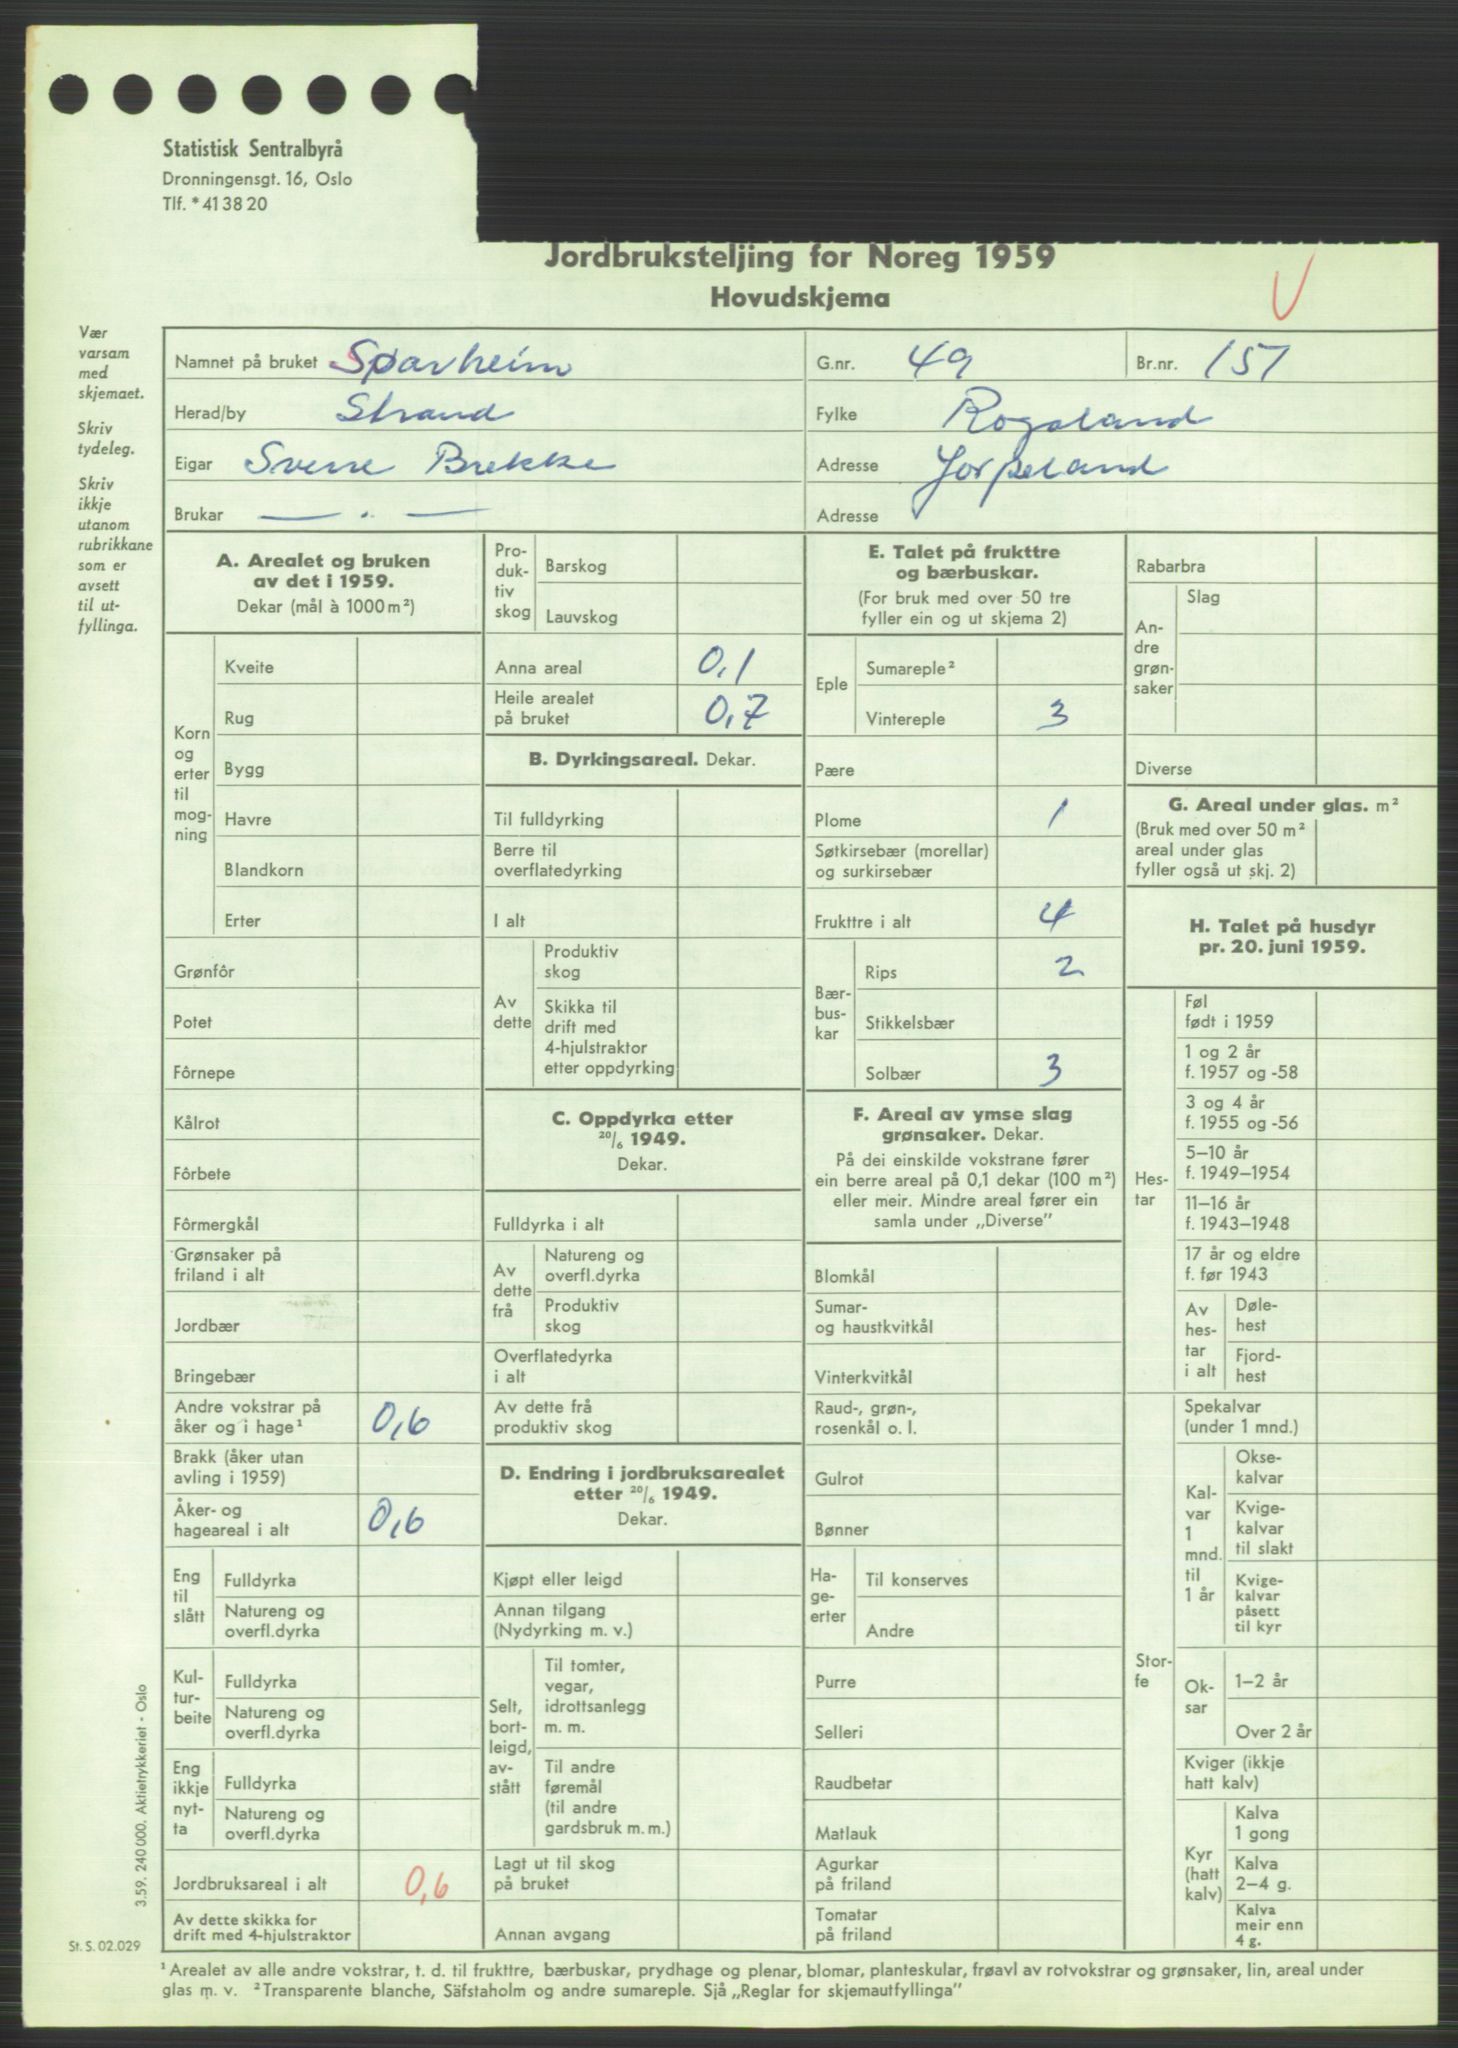 Statistisk Sentralbyrå
Dronningensgt. 16, Oslo
Tlf. *41 38 20
Jordbruksteljing for Noreg 1959
Hovudskjema
V
Vær
varsam
med
skjemaet.
Skriv
tydeleg.
Skriv
ikkje
utanom
rubrikkane
som er
avsett
til ut-
fyllinga.
Namnet på bruket Sparheim G.nr. 49 Br.nr. 151
Herad/by Strand Fylke Rogaland
Eigar Sverre Brekke Adresse Jørpeland
Brukar — . — Adresse
A. Arealet og bruken
av det i 1959.
Dekar (mål à 1000 m²)
Korn
og
erter
til
mog-
ning
Kveite
Rug
Bygg
Havre
Blandkorn
Erter
Grønfôr
Potet
Fôrnepe
Kålrot
Fôrbete
Fôrmergkål
Grønsaker på
friland i alt
Jordbær
Bringebær
Andre vokstrar på
åker og i hage¹ 0,6
Brakk (åker utan
avling i 1959)
Åker- og
hageareal i alt 0,6
Eng
til
slått
Fulldyrka
Natureng og
overfl.dyrka
Kul-
tur-
beite
Fulldyrka
Natureng og
overfl.dyrka
Eng
ikkje
nyt-
ta
Fulldyrka
Natureng og
overfl.dyrka
Jordbruksareal i alt 0,6
Av dette skikka for
drift med 4-hjulstraktor
Pro-
duk-
tiv
skog
Barskog
Lauvskog
Anna areal 0,1
Heile arealet
på bruket 0,7
B. Dyrkingsareal. Dekar.
Til fulldyrking
Berre til
overflatedyrking
I alt
Av
dette
Produktiv
skog
Skikka til
drift med
4-hjulstraktor
etter oppdyrking
C. Oppdyrka etter
20/6 1949.
Dekar.
Fulldyrka i alt
Av
dette
frå
Natureng og
overfl.dyrka
Produktiv
skog
Overflatedyrka
i alt
Av dette frå
produktiv skog
D. Endring i jordbruksarealet
etter 20/6 1949.
Dekar.
Kjøpt eller leigd
Annan tilgang
(Nydyrking m. v.)
Selt,
bort-
leigd,
av-
stått
Til tomter,
vegar,
idrottsanlegg
m. m.
Til andre
føremål
(til andre
gardsbruk m. m.)
Lagt ut til skog
på bruket
Annan avgang
E. Talet på frukttre
og bærbuskar.
(For bruk med over 50 tre
fyller ein og ut skjema 2)
Eple
Sumareple²
Vintereple 3
Pære
Plome 1
Søtkirsebær (morellar)
og surkirsebær
Frukttre i alt 4
Bær-
bus-
kar
Rips 2
Stikkelsbær
Solbær 3
F. Areal av ymse slag
grønsaker. Dekar.
På dei einskilde vokstrane fører
ein berre areal på 0,1 dekar (100 m²)
eller meir. Mindre areal fører ein
samla under „Diverse”
Blomkål
Sumar-
og haustkvitkål
Vinterkvitkål
Raud-, grøn-,
rosenkål o. l.
Gulrot
Bønner
Ha-
ge-
erter
Til konserves
Andre
Purre
Selleri
Raudbetar
Matlauk
Agurkar
på friland
Tomatar
på friland
Rabarbra
An-
dre
grøn-
saker
Slag
Diverse
G. Areal under glas. m²
(Bruk med over 50 m²
areal under glas
fyller også ut skj. 2)
H. Talet på husdyr
pr. 20. juni 1959.
Hes-
tar
Føl
født i 1959
1 og 2 år
f. 1957 og -58
3 og 4 år
f. 1955 og -56
5–10 år
f. 1949–1954
11–16 år
f. 1943–1948
17 år og eldre
f. før 1943
Av
hes-
tar
i alt
Døle-
hest
Fjord-
hest
Stor-
fe
Spekalvar
(under 1 mnd.)
Kal-
var
1
mnd.
til
1 år
Okse-
kalvar
Kvige-
kalvar
til slakt
Kvige-
kalvar
påsett
til kyr
Ok-
sar
1–2 år
Over 2 år
Kviger (ikkje
hatt kalv)
Kyr
(hatt
kalv)
Kalva
1 gong
Kalva
2–4 g.
Kalva
meir enn
4 g.
3.59. 240 000. Aktietrykkeriet - Oslo
St. S. 02.029
¹ Arealet av alle andre vokstrar, t. d. til frukttre, bærbuskar, prydhage og plenar, blomar, planteskular, frøavl av rotvokstrar og grønsaker, lin, areal under
glas m. v. ² Transparente blanche, Säfstaholm og andre sumareple. Sjå „Reglar for skjemautfyllinga”